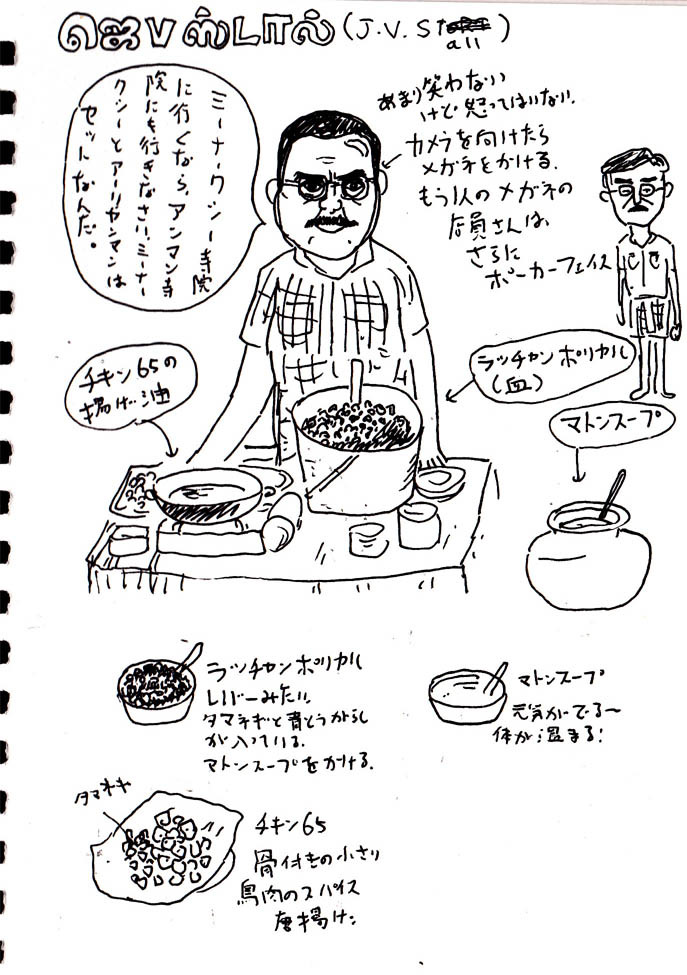 ஜெVஸ்டால் (J.V.Stall)
ミーナークシー寺院
に行くなら、アンマン寺
院にも行きなさい。ミーナー
クシーとアーリヤンマンは
セットなんだ。
あまり笑わない
けど怒ってはいない。
カメラを向けたら
メガネをかける。
もう1人のメガネの
店員さんは、
さらに
ポーカーフェイス
チキン65の
揚げ油
ラッチャンポリヤル
(血)
マトンスープ
ラッチャンポリヤル
レバーみたい。
タマネギと青とうがらし
が入っている。
マトンスープをかける。
マトンスープ
元気がでる〜
体が温まる!
タマネギ
チキン65
骨付きの小さい
鳥肉のスパイス
唐揚げ